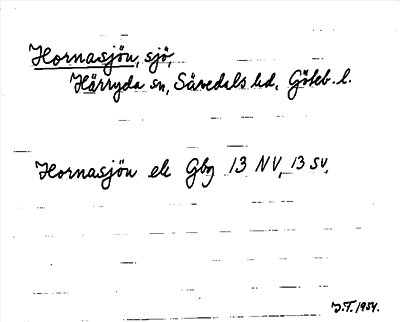 Hornasjön, sjö,
Härryda sn, Sävedals hd, Göteb. l.
Hornasjön ek Gbg 13 NV, 13 SV,
J.T. 1954.